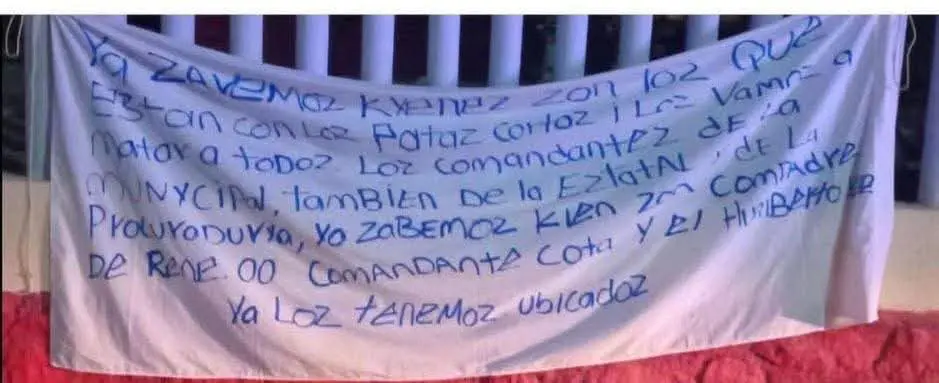 Ya ZAVEMOZ KYENEZ ZON loz QUE
EZtan con Loz Pataz cortoz i Loz Vamoz a
Matar a todoz Loz comandantez dE La
MUNYCIPal, tamBIEN DE la EZtatAL, dE LA
ProcuraDuria, Ya ZaBEMOZ KIEN COMPADRE
DE Rene. 00 COMANDANTE Cota Y El
Ya Loz tenEMOZ ubicadoz